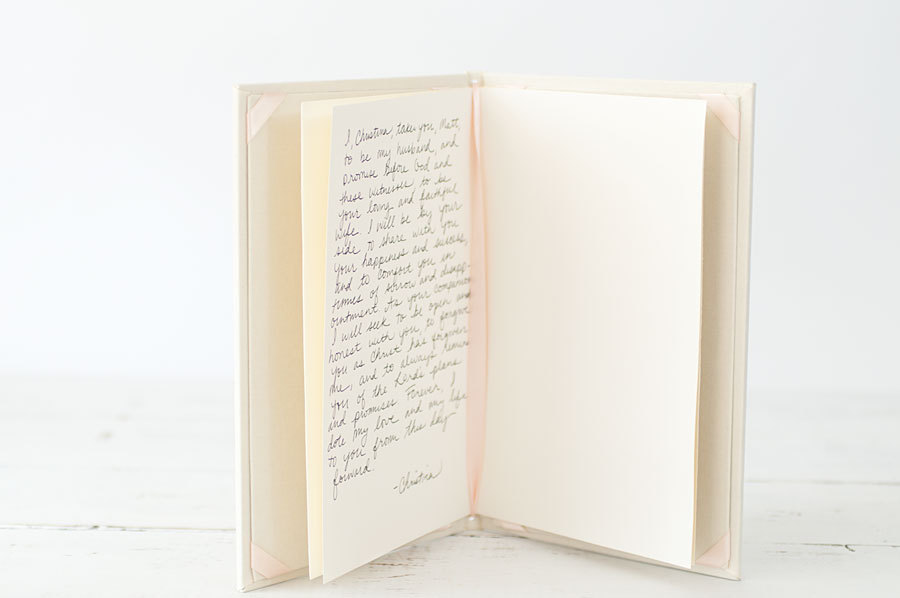 I, Christina, take you, Matt,
to be my husband, and
promise before God and
these witnesses to be
your loving and faithful
wife. I will be by your
side to share with you
your happiness and success,
and to comfort you in
times of sorrow and disapp-
ointment. As your companion
I will seek to be open and
honest with you, to forgive
you as Christ has forgiven
me, and to always remind
you of the Lord's plans
and promises. Forever, I
dote my love and my life
to you from this day
forward.
-Christina